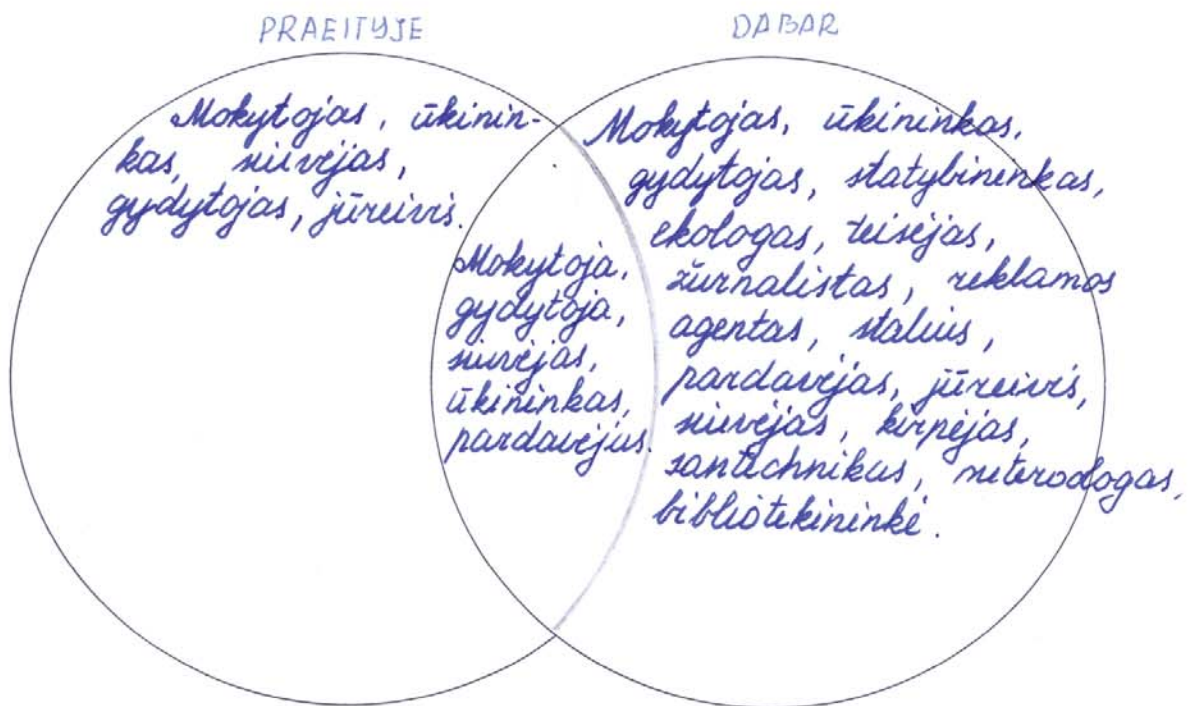 PRAEITYJE
Mokytojas, ūkinin-
kas, siuvėjas,
gydytojas, jūreivis.
Mokytoja,
gydytoja,
siuvėjas,
ūkininkas,
pardavėjas.
DABAR
Mokytojas, ūkininkas,
gydytojas, statybinenkas,
ekologas, teisėjas,
žurnalistas, reklamos
agentas, stalius,
pardavėjas, jūreivis,
siuvėjas, kirpėjas,
santechnikas, meterodogas,
bibliotekininkė.